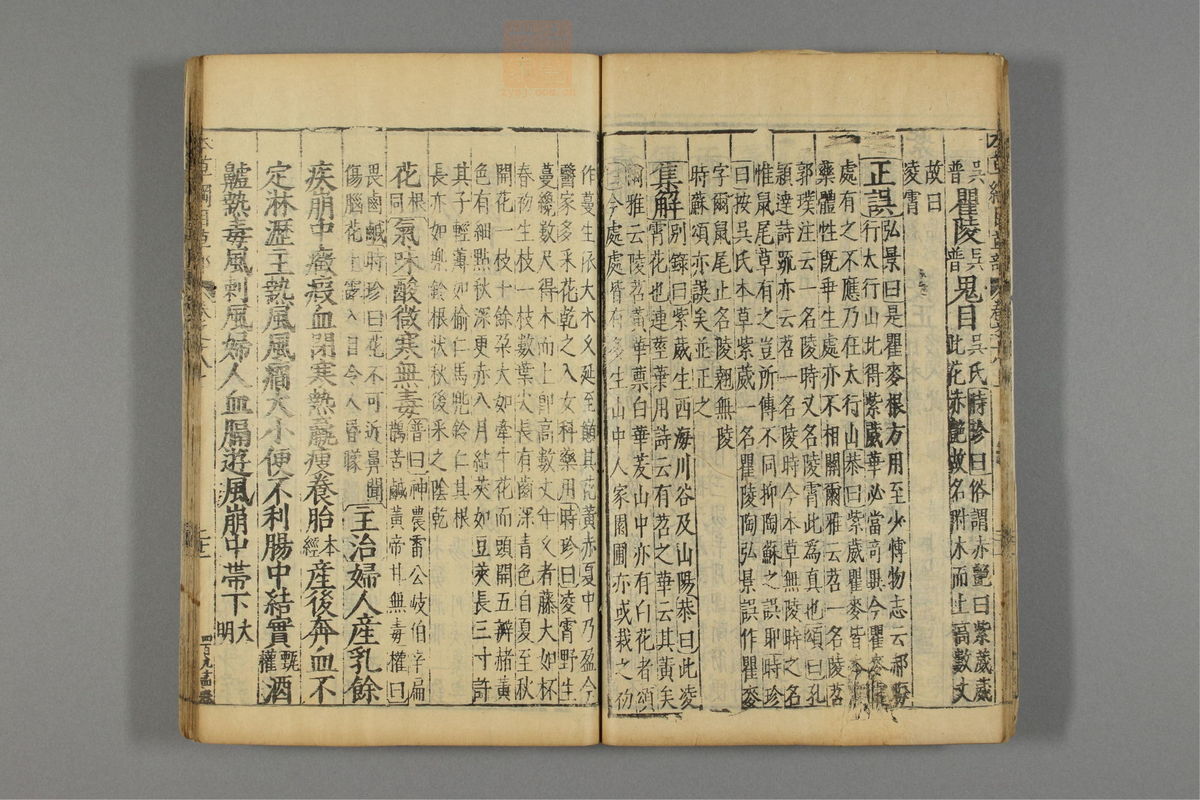 吳普瞿陵吳普鬼目吳氏時珍曰俗謂赤艷曰紫葳葳
此花赤艷故名附木而上高數丈
故曰
凌霄
正誤弘景曰是瞿麥根方用至少博物志云郝晦
行太行山北得紫葳華必當奇異今瞿麥處
處有之不應乃在太行山恭曰紫葳瞿麥皆本
藥體性旣乖生處亦不相關爾雅云苕一名陵苕
郭璞注云一名陵時又名陵霄此爲真也頌曰孔
穎達詩疏亦云苕一名陵時今本草無陵時之名
惟鼠尾草有之豈所傳不同抑陶蘇之誤耶時珍
曰按吳氏本草紫葳一名瞿陵陶弘景誤作瞿麥
字爾鼠尾止名陵翹無陵
時蘇頌亦誤矣並正之
集解別錄曰紫葳生西海川谷及山陽恭曰此凌
霄花也連莖葉用詩云有苕之華云其黃矣
爾雅云陵苕黃華蔈白華茇山中亦有白花者頌
曰今處處皆有多生山中人家園圃亦或栽之初
作蔓生依大木久延至巔其花黃赤夏中乃盈今
醫家多采花乾之入女科藥用時珍曰凌霄野生
蔓纔數尺得木而上卽高數丈年久者藤大如杯
春初生枝一枝數葉尖長有齒深青色自夏至秋
開花一枝十餘朶大如牽牛花而頭開五瓣赭黃
色有細點秋深更赤八月結莢如豆莢長三寸許
其子輕薄如榆仁馬兜鈴仁其根
長亦如兜鈴根狀秋後采之陰乾
花根同氣味酸微寒無毒普曰神農雷公岐伯辛扁
鵲苦鹹黃帝甘無毒權曰
畏鹵鹹時珍曰花不可近鼻聞
傷腦花上露入目令人昏矇主治婦人產乳餘
疾崩中癥瘕血閉寒熱羸瘦養胎本經產後奔血不
定淋瀝主熱風風癇大小便不利腸中結實甄權酒
齇熱毒風刺風婦人血膈遊風崩中帶下大明